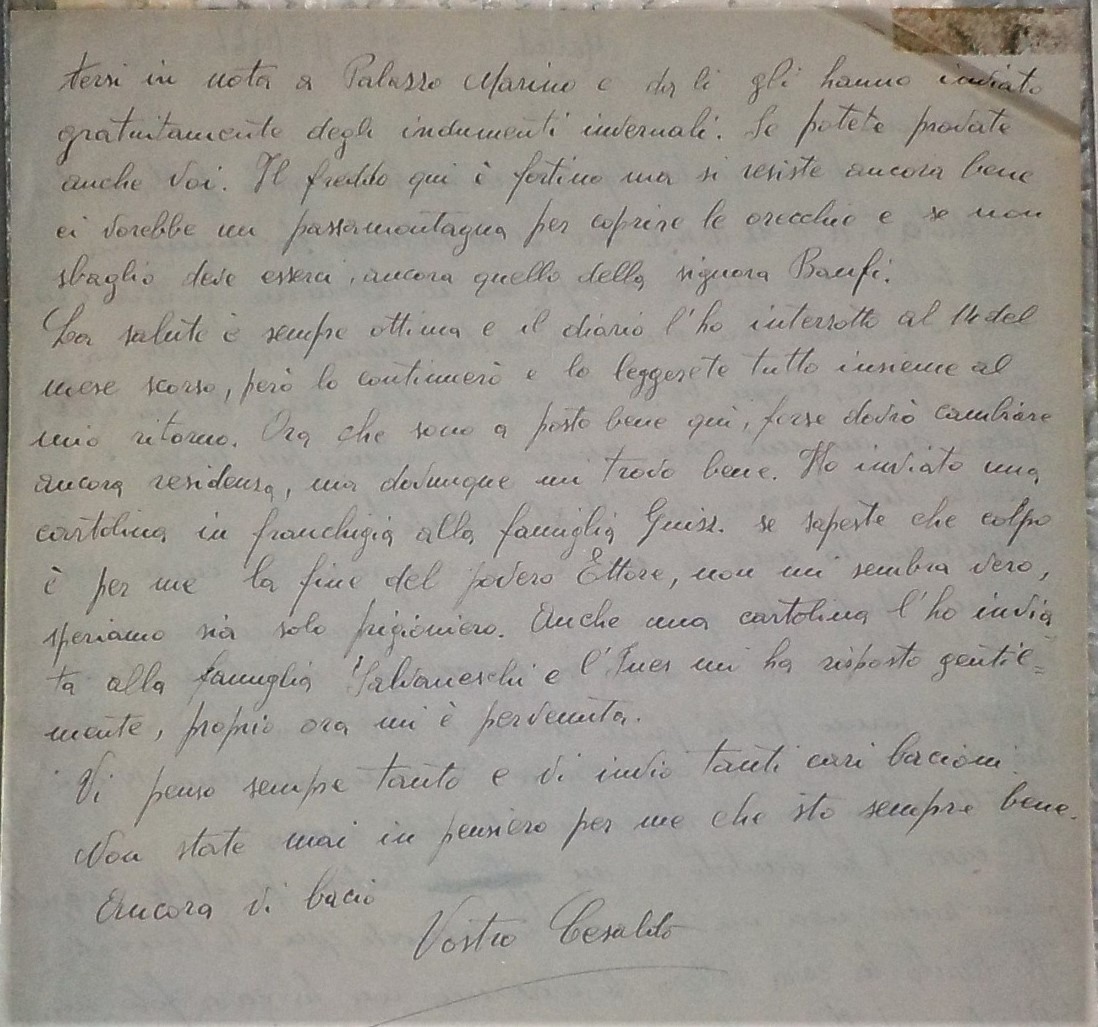 tersi in nota a Palazzo Marino e da lì gli hanno inviato
gratuitamente degli indumenti invernali. Se potete provate
anche voi. Il freddo qui è fortino ma si resiste ancora bene
ci vorebbe un passamontagna per coprire le orecchie e se non
sbaglio deve esserci, ancora quello della signora Banfi.
La salute è sempre ottima e il diario l'ho interrotto al 14 del
mese scorso, però lo continuerò e lo leggerete tutto insieme al
mio ritorno. Ora che sono a posto bene qui, forse dovrò cambiare
ancora residenza, ma dovunque mi trovo bene. Ho inviato una
cartolina in franchigia alla famiglia Guizz. se sapeste che colpo
è per me la fine del povero Ettore, non mi sembra vero,
speriamo sia solo prigioniero. Anche una cartolina l'ho invia
ta alla famiglia Salvaneschi e l'Ines mi ha risposto gentil=
mente, proprio ora mi è pervenuta.
Vi penso sempre tanto e vi invio tanti cari bacioni.
Non state mai in pensiero per me che sto sempre bene.
Ancora vi bacio
Vostro Cesaldo